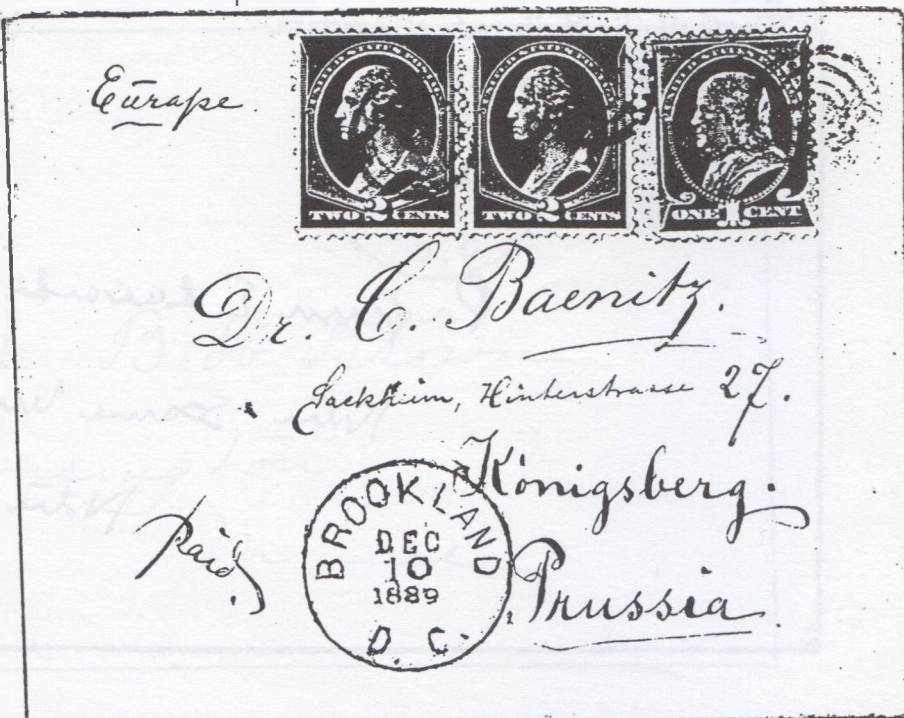 Europe
UNITED STATES POSTAGE
TWO 2 CENTS
UNITED STATES POSTAGE
TWO 2 CENTS
UNITED STATES POSTAGE
ONE 1 CENT
Dr. C. Baenitz.
Sackheim, Hinterstrasse 27.
Königsberg.
Prussia
Paid.
BROOKLAND
DEC
10
1889
D. C.